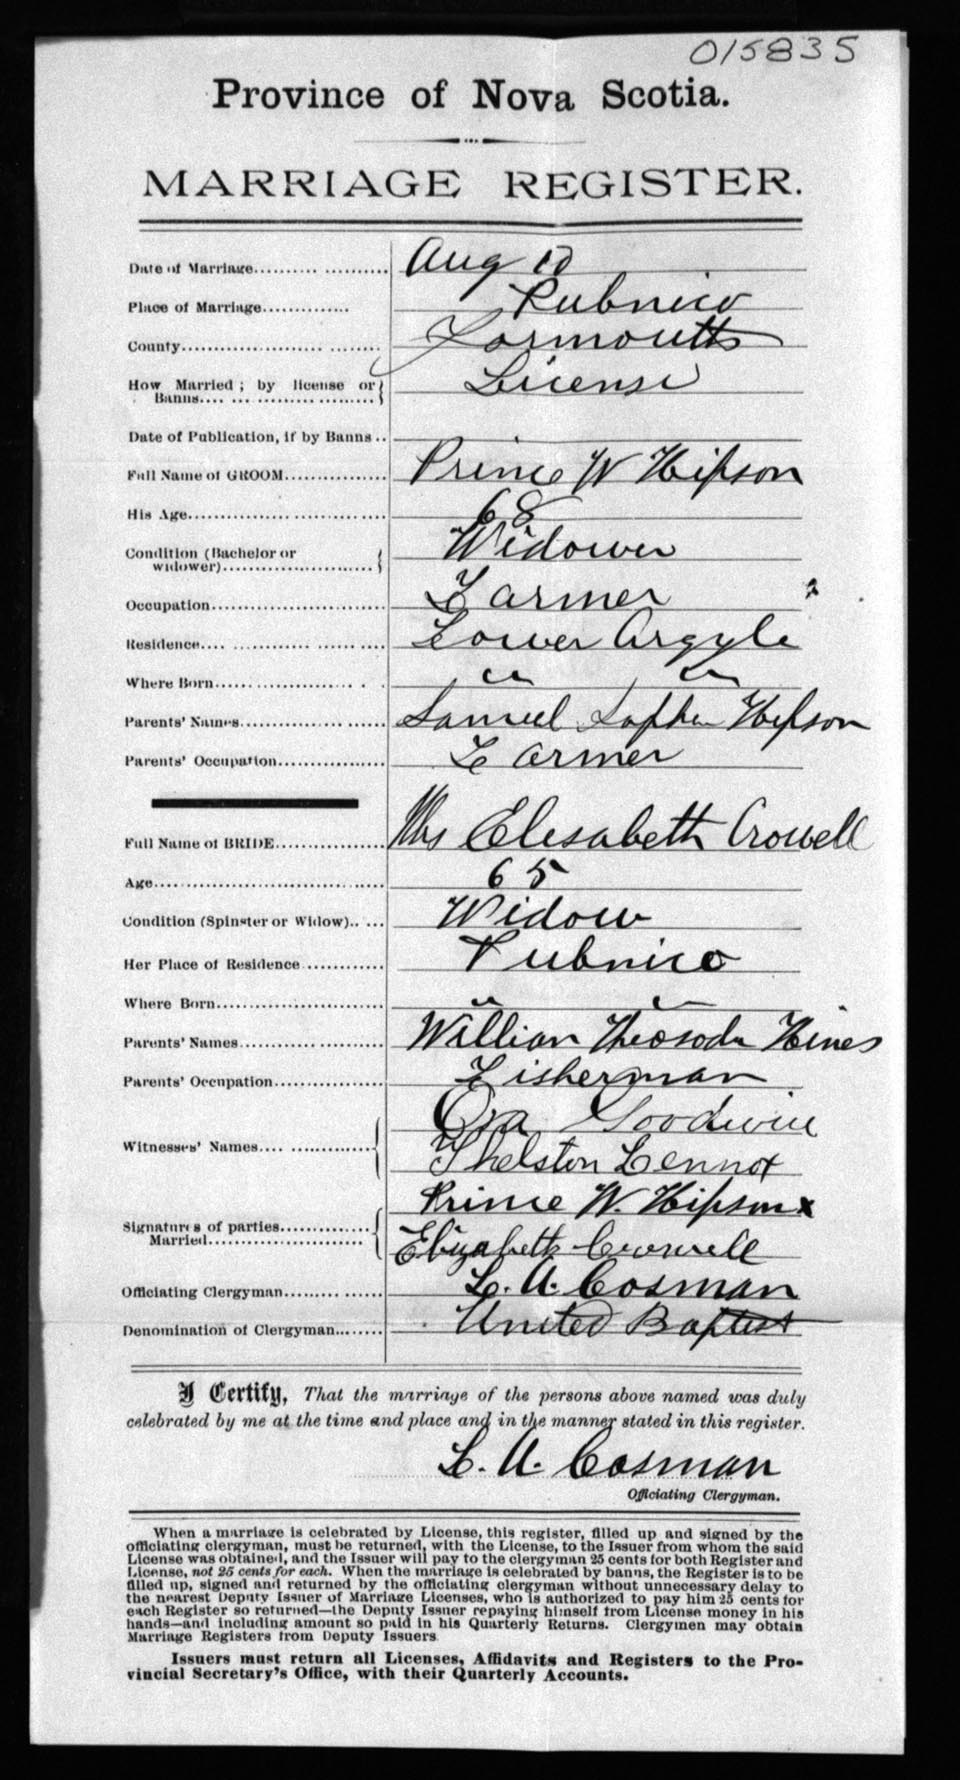 015835
Province of Nova Scotia.
MARRIAGE REGISTER.
Date of Marriage Aug 10
Place of Marriage Pubnico
County Yarmouth
How Married; by license or License
Banns
Date of Publication, if by Banns
Full Name of GROOM Prince W Hipson
His Age 68
Condition (Bachelor or Widower
widower)
Occupation Farmer
Residence Lower Argyle
Where Born " "
Parents' Names Samuel Hipson
Parents' Occupation Farmer
Full Name of BRIDE Mrs Elesabeth Crowell
Age 65
Condition (Spinster or Widow) Widow
Her Place of Residence Pubnico
Where Born " "
Parents' Names William Theosoda Hines
Parents' Occupation Fisherman
Witnesses' Names Eva Goodwin
Thelston Lennox
Signatures of parties Prince W. Hipson x
Married Elizabeth Crowell
Officiating Clergyman L. A. Cosman
Denomination of Clergyman United Baptist
I Certify, That the marriage of the persons above named was duly
celebrated by me at the time and place and in the manner stated in this register.
L. A. Cosman
Officiating Clergyman.
When a marriage is celebrated by License, this register, filled up and signed by the
officiating clergyman, must be returned, with the License, to the Issuer from whom the said
License was obtained, and the Issuer will pay to the clergyman 25 cents for both Register and
License, not 25 cents for each. When the marriage is celebrated by banns, the Register is to be
filled up, signed and returned by the officiating clergyman without unnecessary delay to
the nearest Deputy Issuer of Marriage Licenses, who is authorized to pay him 25 cents for
each Register so returned—the Deputy Issuer repaying himself from License money in his
hands—and including amount so paid in his Quarterly Returns. Clergymen may obtain
Marriage Registers from Deputy Issuers
Issuers must return all Licenses, Affidavits and Registers to the Pro-
vincial Secretary's Office, with their Quarterly Accounts.